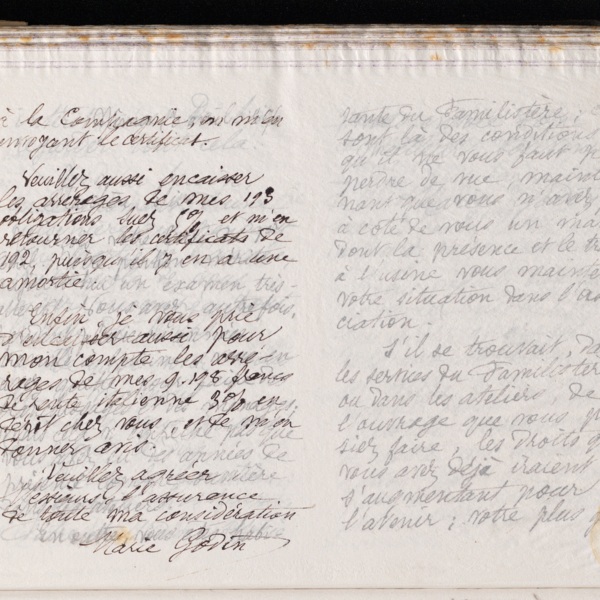 à la Compagnie, en m'en
envoyant le certificat.
Veuillez aussi encaisser
les arrérages de mes 193
obligations Suez 5% et m'en
retourner les certificats de
192, puisqu'il y en a une
amortie.
Enfin je vous prie
d'encaisser aussi pour
mon compte les arré-
rages de mes 9.198 francs
de rente italienne 5% en
dépôt chez vous, et de m'en
donner avis.
Veuillez agréer
l'assurance
de toute ma considération
Marie Godin
sante du Familistère;
sont là des conditions
qu'il ne vous faut p
perdre de vue mainte
nant que vous n'avez
à côté de vous un ma
dont la présence et le tr
à l'usine vous mainte
votre situation dans l'as
ciation.
S'il se trouvait, da
les services du Familistèr
ou dans les ateliers de
l'ouvrage que vous p
siez faire, les droits q
vous avez déjà iraient
s'augmentant pour
l'avenir; votre plus